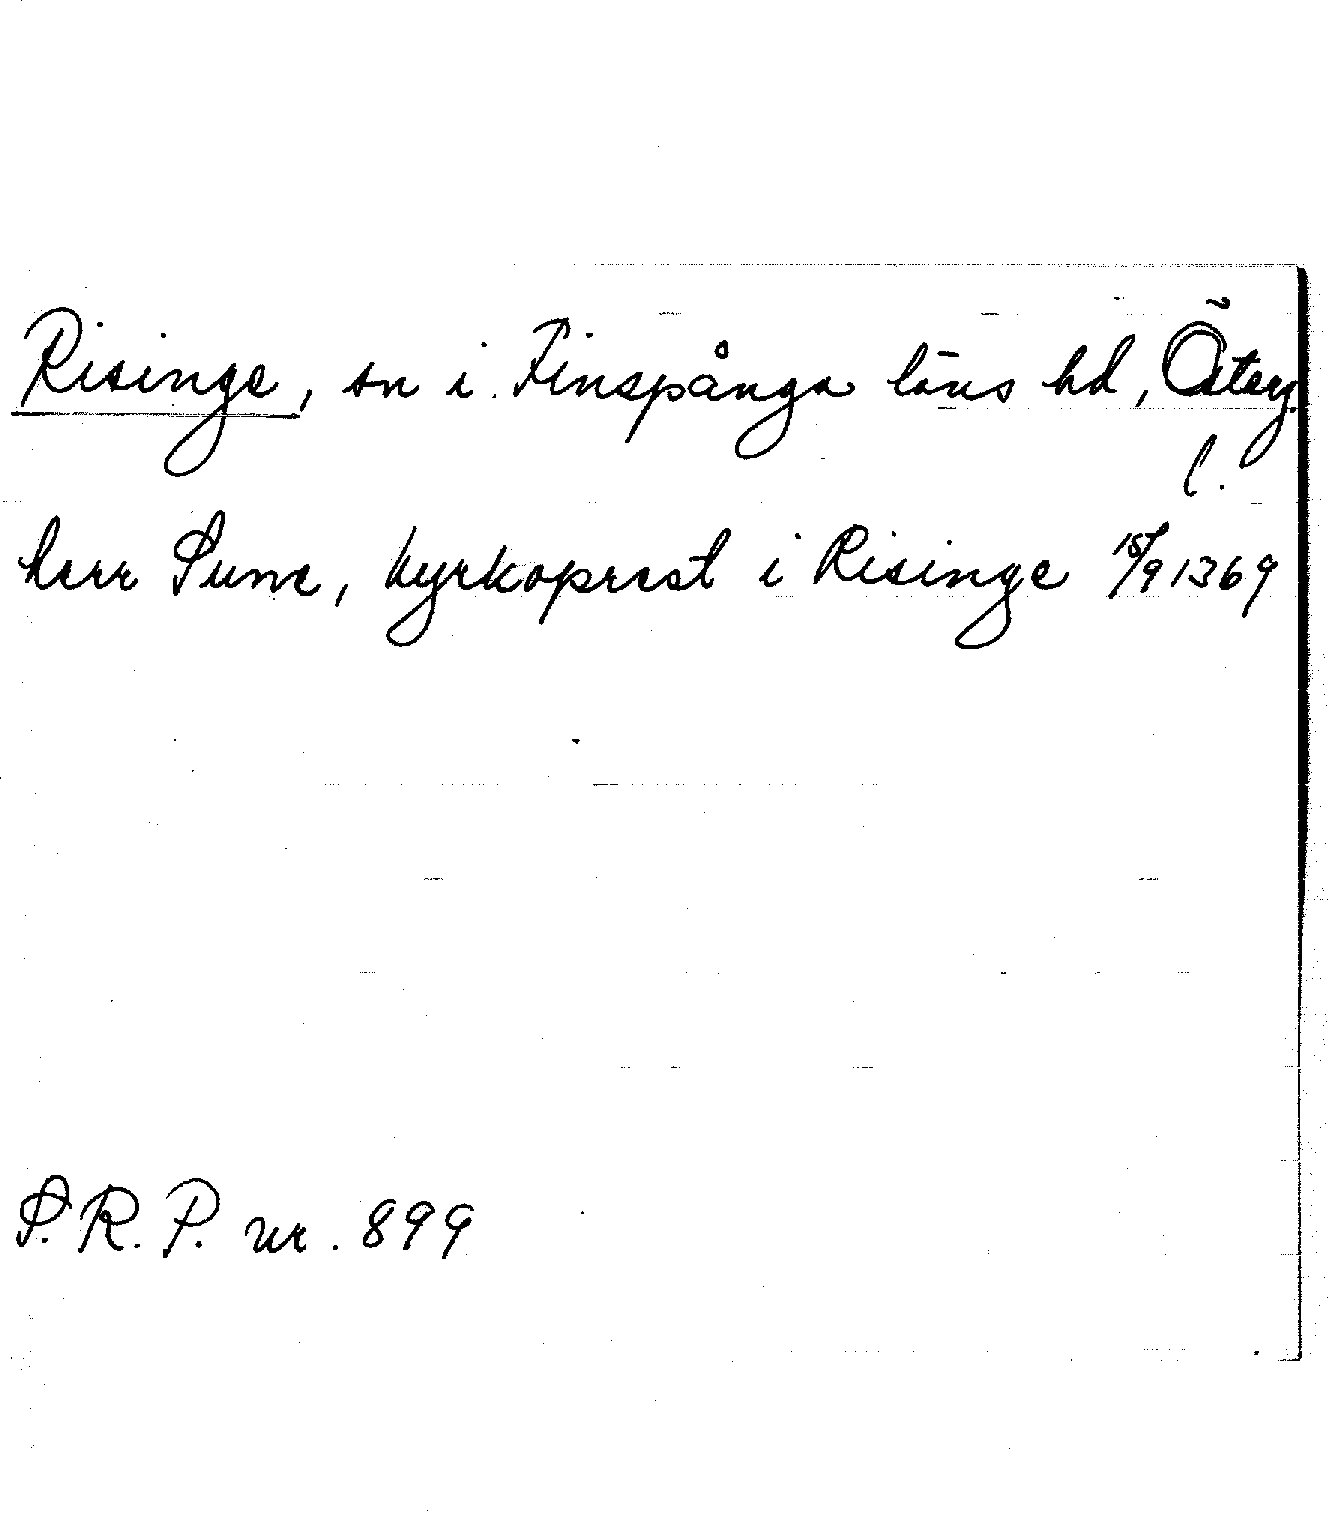 Risinge, sn i Finspånga läns hd, Österg.
l.
herr Sune, kyrkoprest i Risinge 15/9 1369
S. R. P. nr. 899